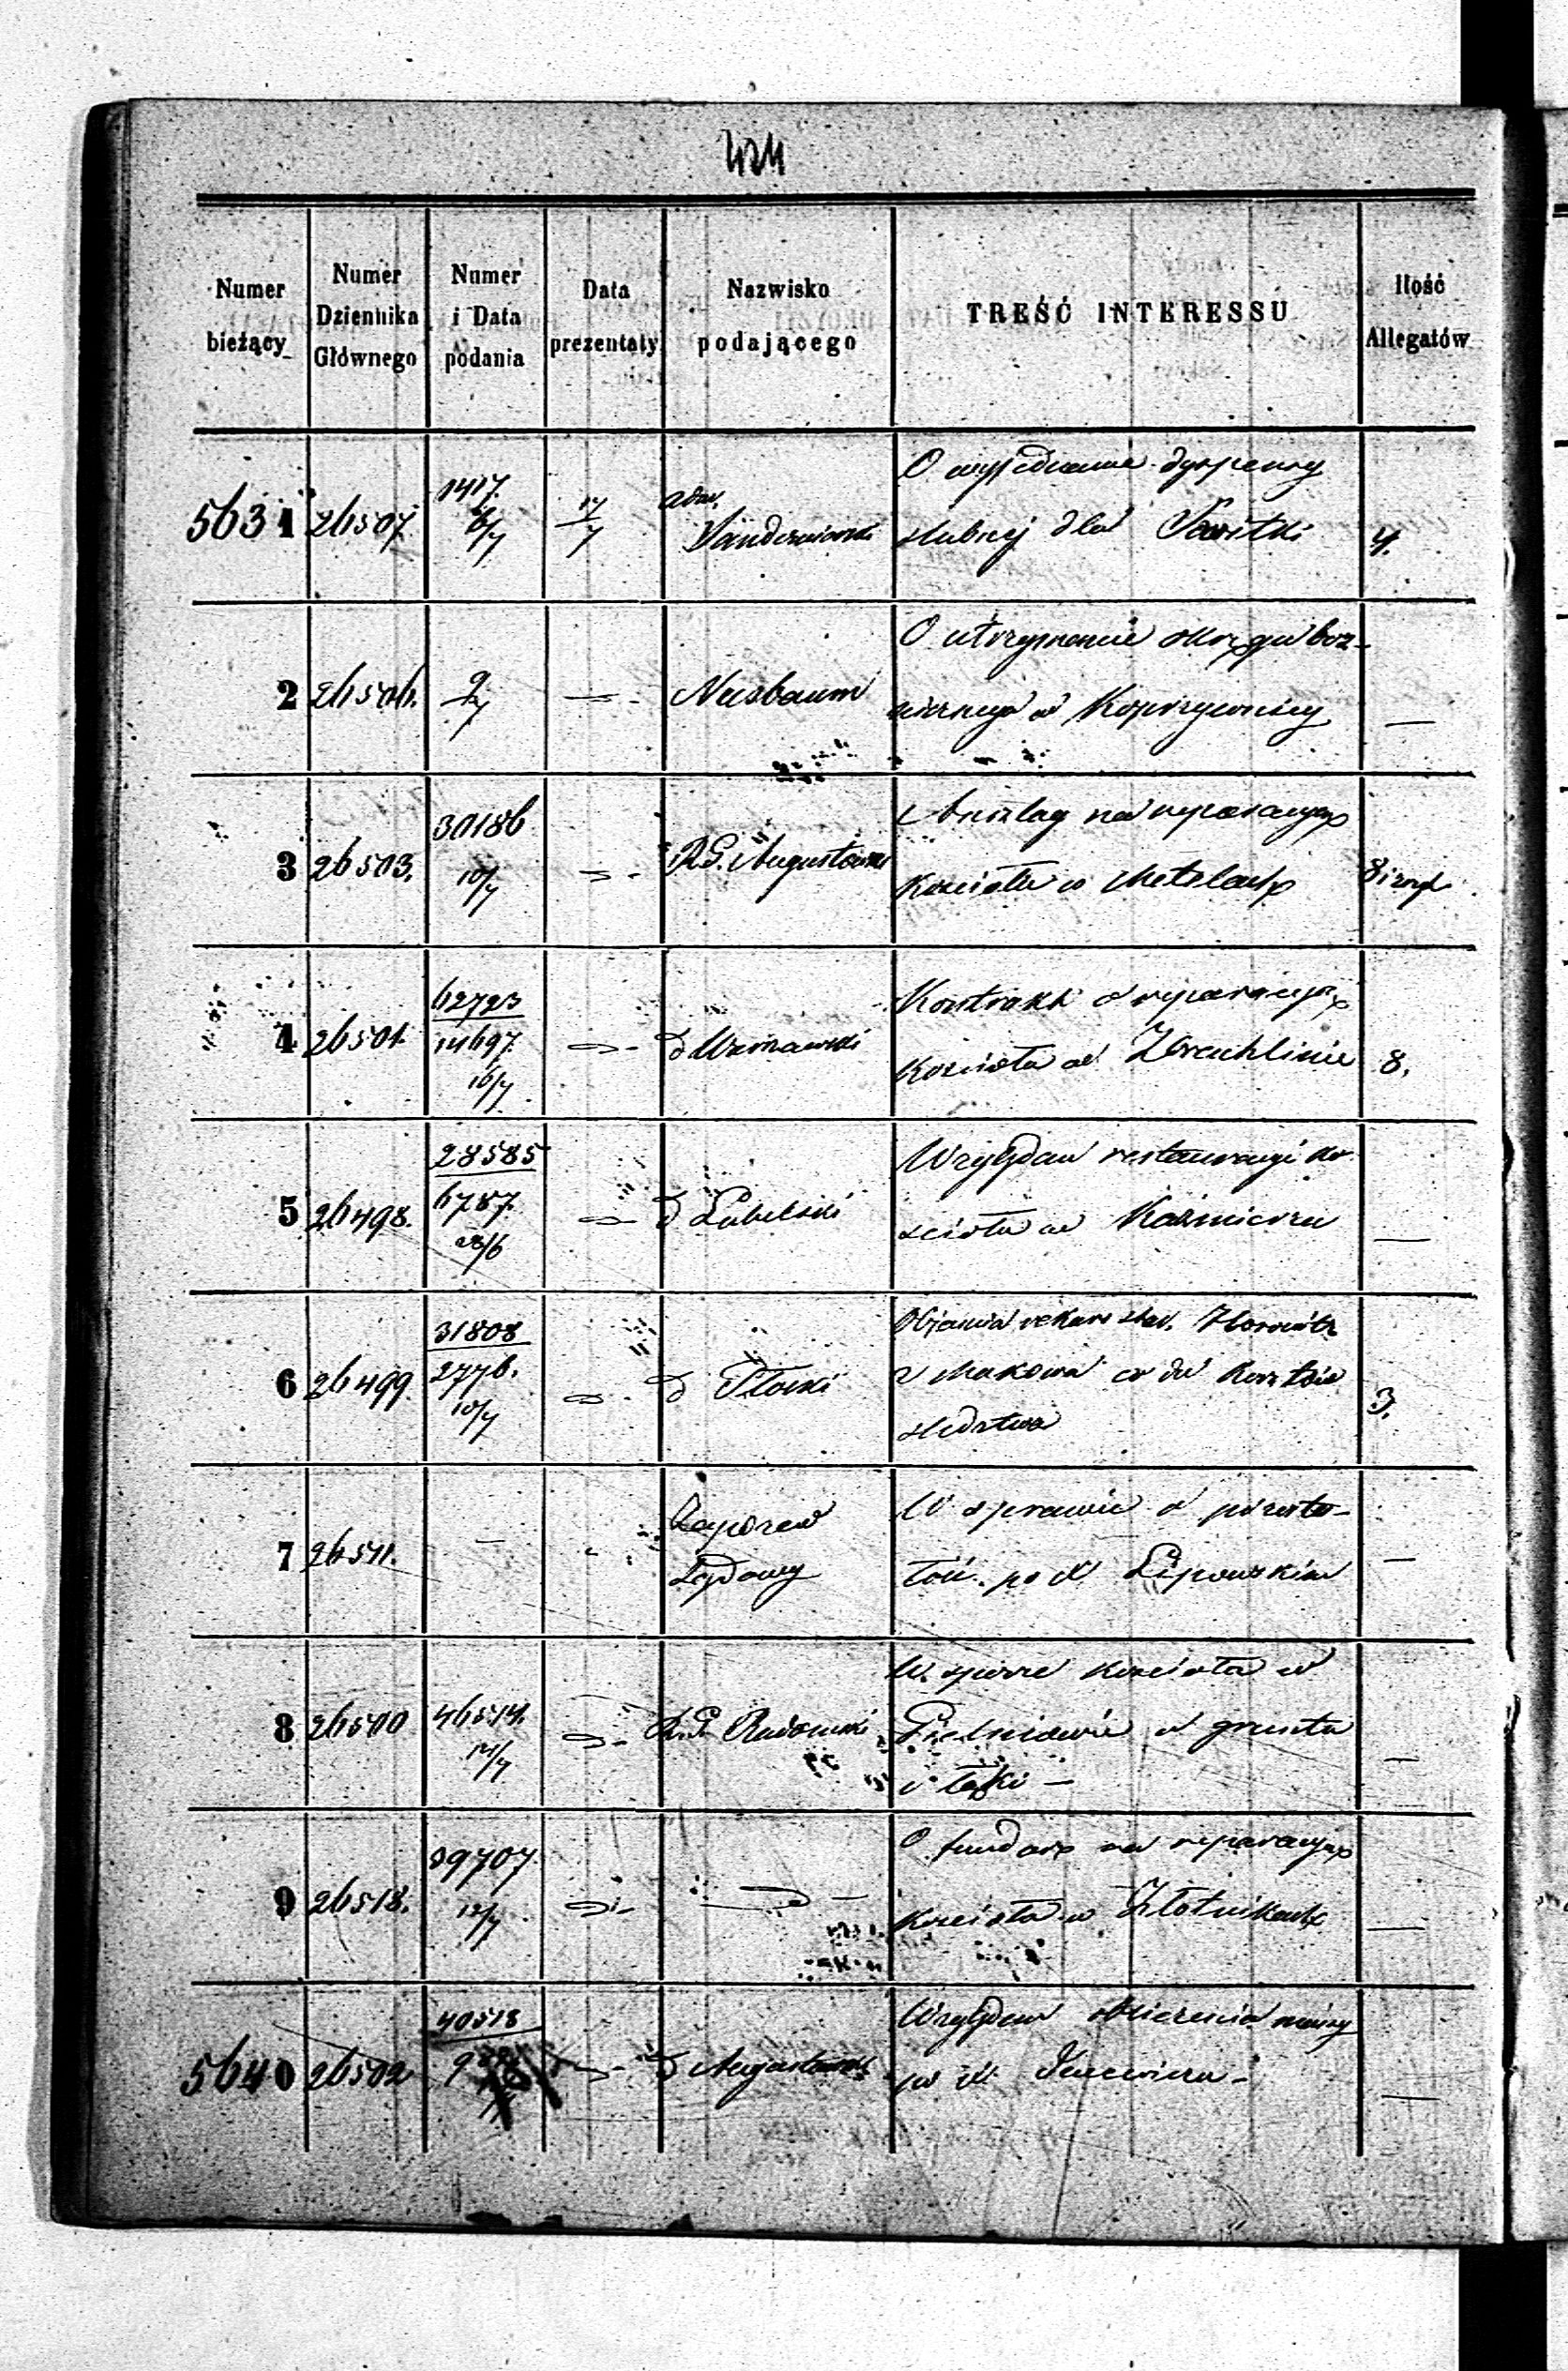 424
Numer bieżący
Numer Dziennika Głównego
Numer i Data podania
Data prezentaty
Nazwisko podającego
TREŚĆ INTERESSU
Ilość Allegatów
5631 26507 1417. 6/7 17/7 adw.
O wyjednanie dyspensy
ślubnej dla 4.
2 26506. 9/7 — Nusbaum
O utrzymanie okręgu boż-
nicznego w Koprzywnicy —
3 26503. 30186 10/7 R.G. Augustowski
Anszlag na reparacyą
kościoła w Metelach 8 i rys.
4 26501. 62723 14697. 16/7 d Warszawski
Kontrakt o reparacyą
kościoła w Zbrachlinie 8.
5 26498. 28585 6787. 28/6 d Lubelski
Względem restauracyi ko-
ścioła w Kaźmierzu —
6 26499. 31808 2776. 10/7 d Płocki
Horowitz
z Makowa co do kosztów
śledztwa 3.
7 26511. — Zaporów
W sprawie o pozosta-
łość po X. Lipowskim —
8 26500 46514. 12/7 R.G. Radomski
W sporze kościoła w
Gielniowie o grunta
i łąki —
9 26518. 39707. 12/7
O fundusz na reparacyą
kościoła w Złotnikach —
5640 26502 40518 d Augustowski
Względem
po X. —